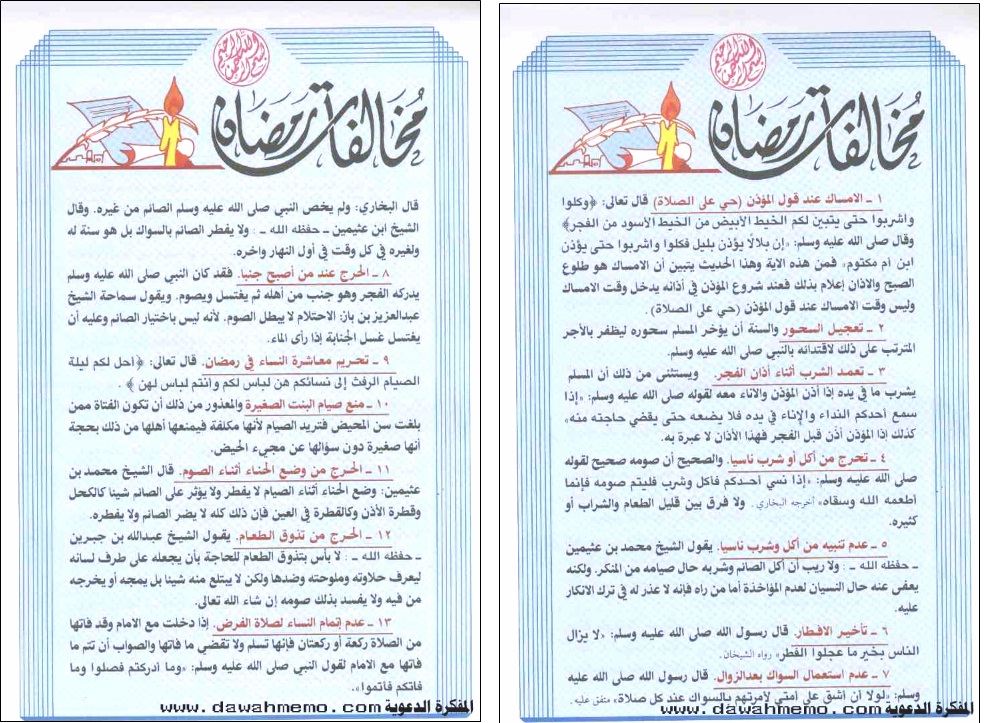 بسم الله الرحمن الرحيم
مخالفات رمضان
١ ـ الامساك عند قول المؤذن (حي على الصلاة) قال تعالى: ﴿وكلوا
واشربوا حتى يتبين لكم الخيط الأبيض من الخيط الأسود من الفجر﴾
وقال صلى الله عليه وسلم: «إن بلالا يؤذن بليل فكلوا واشربوا حتى يؤذن
ابن أم مكتوم» فمن هذه الآية وهذا الحديث يتبين أن الامساك هو طلوع
الصبح والاذان إعلام بذلك فعند شروع المؤذن في أذانه يدخل وقت الامساك
وليس وقت الامساك عند قول المؤذن (حي على الصلاة).
٢ ـ تعجيل السحور والسنة أن يؤخر المسلم سحوره ليظفر بالأجر
المترتب على ذلك لاقتدائه بالنبي صلى الله عليه وسلم.
٣ ـ تعمد الشرب أثناء أذان الفجر. ويستثنى من ذلك أن المسلم
يشرب ما في يده إذا أذن المؤذن والاناء معه لقوله صلى الله عليه وسلم: «إذا
سمع أحدكم النداء والإناء في يده فلا يضعه حتى يقضي حاجته منه»
كذلك إذا المؤذن أذن قبل الفجر فهذا الأذان لا عبرة به.
٤ ـ تحرج من أكل أو شرب ناسيا. والصحيح أن صومه صحيح لقوله
صلى الله عليه وسلم: «إذا نسي أحدكم فأكل وشرب فليتم صومه فإنما
أطعمه الله وسقاه» أخرجه البخاري. ولا فرق بين قليل الطعام والشراب أو
كثيره.
٥ ـ عدم تنبيه من أكل وشرب ناسيا. يقول الشيخ محمد بن عثيمين
ـ حفظه الله ـ : ولا ريب أن أكل الصائم وشربه حال صيامه من المنكر. ولكنه
يعفى عنه حال النسيان لعدم المؤاخذة أما من راه فإنه لا عذر له في ترك الانكار
عليه.
٦ ـ تأخير الافطار. قال رسول الله صلى الله عليه وسلم: «لا يزال
الناس بخير ما عجلوا الفطر» رواه الشيخان.
٧ ـ عدم استعمال السواك بعد الزوال. قال رسول الله صلى الله عليه
وسلم: «لولا أن أشق على أمتي لأمرتهم بالسواك عند كل صلاة» متفق عليه.
المفكرة الدعوية www.dawahmemo.com
بسم الله الرحمن الرحيم
مخالفات رمضان
قال البخاري: ولم يخص النبي صلى الله عليه وسلم الصائم من غيره. وقال
الشيخ ابن عثيمين ـ حفظه الله ـ : ولا يفطر الصائم بالسواك بل هو سنة له
ولغيره في كل وقت في أول النهار واخره.
٨ ـ الحرج عند من أصبح جنبا. فقد كان النبي صلى الله عليه وسلم
يدركه الفجر وهو جنب من أهله ثم يغتسل ويصوم. ويقول سماحة الشيخ
عبدالعزيز بن باز: الاحتلام لا يبطل الصوم. لأنه ليس باختيار الصائم وعليه أن
يغتسل غسل الجنابة إذا رأى الماء.
٩ ـ تحريم معاشرة النساء في رمضان. قال تعالى: ﴿أحل لكم ليلة
الصيام الرفث إلى نسائكم هن لباس لكم وأنتم لباس لهن﴾ .
١٠ ـ منع صيام البنت الصغيرة والمعذور من ذلك أن تكون الفتاة ممن
بلغت سن المحيض فتريد الصيام لأنها مكلفة فيمنعها أهلها من ذلك بحجة
أنها صغيرة دون سؤالها عن مجيء الحيض.
١١ ـ الحرج من وضع الحناء أثناء الصوم. قال الشيخ محمد بن
عثيمين: وضع الحناء أثناء الصيام لا يفطر ولا يؤثر على الصائم شيئا كالكحل
وقطرة الأذن وكالقطرة في العين فإن ذلك كله لا يضر الصائم ولا يفطره.
١٢ ـ الحرج من تذوق الطعام. يقول الشيخ عبدالله بن جبرين
ـ حفظه الله ـ : لا بأس بتذوق الطعام للحاجة بأن يجعله على طرف لسانه
ليعرف حلاوته وملوحته وضدها ولكن لا يبتلع منه شيئا بل يمجه أو يخرجه
من فيه ولا يفسد بذلك صومه إن شاء الله تعالى.
١٣ ـ عدم إتمام النساء لصلاة الفرض. إذا دخلت مع الامام وقد فاتها
من الصلاة ركعة أو ركعتان فإنها تسلم ولا تقضي ما فاتها والصواب أن تتم ما
فاتها مع الامام لقول النبي صلى الله عليه وسلم: «وما أدركتم فصلوا وما
فاتكم فأتموا».
المفكرة الدعوية www.dawahmemo.com